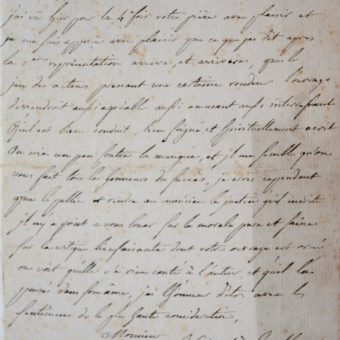 j'ai vu hier pour la 4e fois votre pièce avec plaisir et
je me suis apperçu avec plaisir que ce que j'ai dit après
la 1ere représentation arrive, et arrivera, que le
jeu des acteurs prenant une certaine rondeur l'ouvrage
deviendroit aussi agréable aussi amusant aussi intéressant
qu'il est bien conduit, bien soigné et spirituellement ecrit
On crie un peu contre la musique, et il me semble qu'on
vous fait tous les honneurs du succès, je crois cependant
que le public rendra au musicien la justice qu'il mérite
il n'y a point a vous louer sur la morale pure et saine
sur la critique bienfaisante dont votre ouvrage est orné
on voit qu'elle n'a rien couté à l'auteur et qu'il l'a
puisée dans son âme, j'ai l'honneur d'etre avec les
sentimens de la plus haute considération,
Monsieur